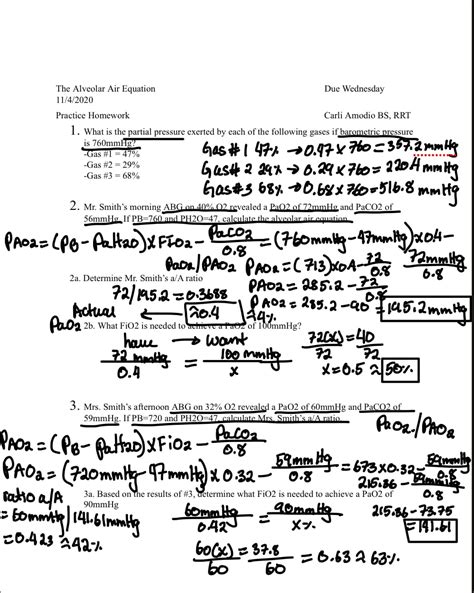 The Alveolar Air Equation Due Wednesday
11/4/2020
Practice Homework Carli Amodio BS, RRT
1. What is the partial pressure exerted by each of the following gases if barometric pressure
is 760mmHg?
-Gas #1 = 47% Gas#1 47% → 0.47 x 760 = 357.2 mmHg
-Gas #2 = 29% Gas#2 29% → 0.29 x 760 = 220.4 mmHg
-Gas #3 = 68% Gas#3 68% → 0.68 x 760 = 516.8 mmHg
2. Mr. Smith's morning ABG on 40% O2 revealed a PaO2 of 72mmHg and PaCO2 of
56mmHg. If PB=760 and PH2O=47, calculate the alveolar air equation.
PAO2 = (PB - PaH2O) x FiO2 - PaCO2 / 0.8 = (760mmHg - 47mmHg) x 0.4 - 72mmHg / 0.8
PaO2/PAO2 PAO2 = (713) x 0.4 - 72 / 0.8
2a. Determine Mr. Smith's a/A ratio PAO2 = 285.2 - 72 / 0.8
72/195.2 = 0.3688 PAO2 = 285.2 - 90 = 195.2 mmHg
Actual PaO2 ≈0.4
2b. What FiO2 is needed to achieve a PaO2 of 100mmHg?
have → want 72(x) = 40
72 mmHg / 0.4 = 100 mmHg / x 72 72
x = 0.5 ≈ 50%
3. Mrs. Smith's afternoon ABG on 32% O2 revealed a PaO2 of 60mmHg and PaCO2 of
59mmHg. If PB=720 and PH2O=47, calculate Mrs. Smith's a/A ratio. PaO2/PAO2
PAO2 = (PB - PaH2O) x FiO2 - PaCO2 / 0.8
PAO2 = (720mmHg - 47mmHg) x 0.32 - 59mmHg / 0.8 = 673 x 0.32 - 59mmHg / 0.8
215.86 - 59mmHg / 0.8
ratio a/A 3a. Based on the results of #3, determine what FiO2 is needed to achieve a PaO2 of
90mmHg
= 60mmHg/141.61mmHg 60mmHg / 0.42 = 90mmHg / x% 215.86 - 73.75
= 0.423 ≈ 42% = 141.61
60(x) / 60 = 37.8 / 60 = 0.63 ≈ 63%